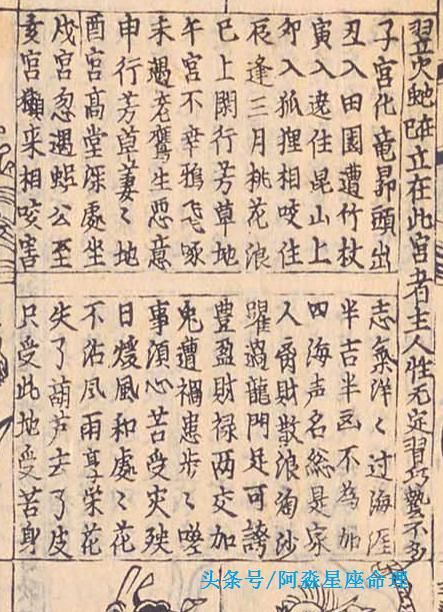 翌火蛇立在此宮者主人性无定習巧藝不多
子宮化竜昻頭出
志氣洋〻过海涯
丑入田園遭竹杖
半吉半凶不為加
寅入遶住昆山上
四海声名総是家
卯入狐狸相咬住
人齊財散浪淘沙
辰逢三月桃花浪
躍過龍門廷可誇
巳上閑行芳草地
豐盈財禄两交加
午宮不幸鴉飛啄
兎遭禍患步〻嗟
未遇老鷹生惡意
事須心苦受灾殃
申行芳草萋〻地
日煖風和處〻花
酉宮高堂深處坐
不沾风雨享荣花
戌宮忽遇蜈公至
失了葫芦去了皮
亥宮獺来相咬害
只受此地受苦身
头条号/阿淼星座命理